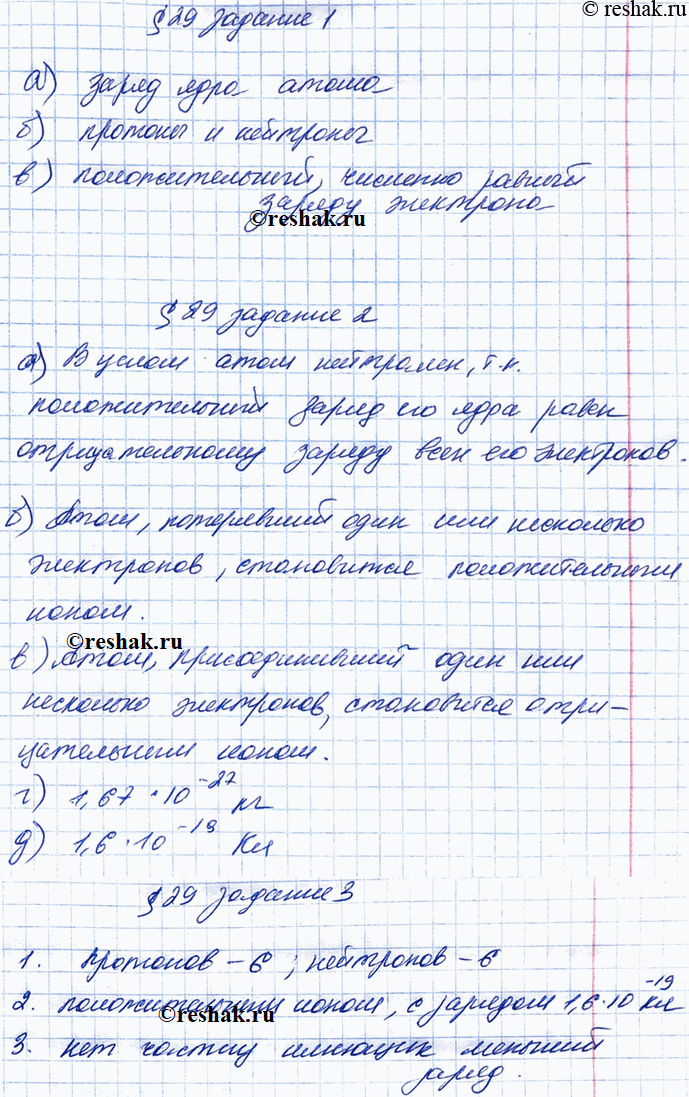 © reshak.ru
§29 задание 1
а) заряд ядра атома
б) протоны и нейтроны
в) положительный, численно равный
заряду электрона
©reshak.ru
§ 29 задание 2
а) В целом атом нейтрален, т.к.
положительный заряд его ядра равен
отрицательному заряду всех его электронов.
б) Атом, потерявший один или несколько
электронов, становится положительным
ионом.
©reshak.ru
в) Атом, присоединивший один или
несколько электронов, становится отри-
цательным ионом.
г) 1,67 · 10⁻²⁷ кг
д) 1,6 · 10⁻¹⁹ Кл
§29 задание 3
1. Протонов – 6 ; нейтронов – 6
2. положительным ионом, с зарядом 1,6·10⁻¹⁹ Кл
©reshak.ru
3. нет частиц имеющих меньший
заряд.